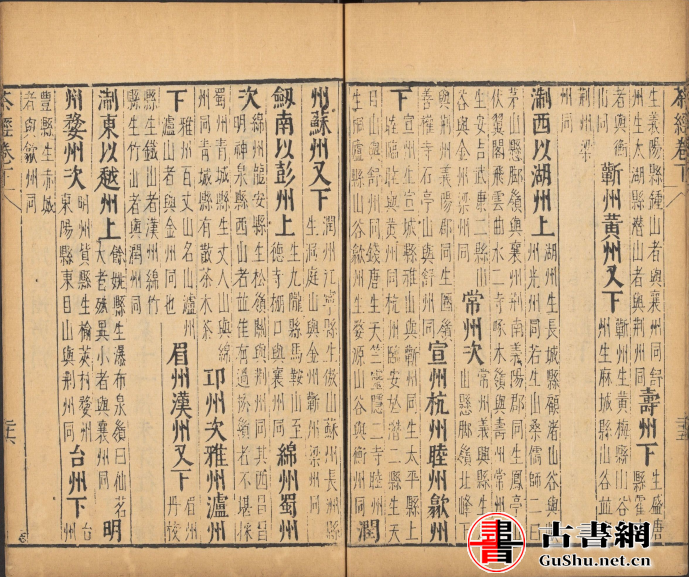 茶經卷下
生義陽縣鍾山者與襄州同舒州生太湖縣潛山者與荊州同壽州下生盛唐縣霍
山者與衡山同蘄州黃州又下蘄州生黃梅縣山谷黃州生麻城縣山谷並與
荊州梁州同
淛西以湖州上湖州生長城縣顧渚山谷與峽州光州同若生山桑儒師二寺白
茅山懸脚嶺與襄州荊南義陽郡同生鳳亭山伏翼閣飛雲曲水二寺啄木嶺與壽州常州同
生安吉武康二縣山谷與金州梁州同常州次常州義興縣生君山懸脚嶺北峰下
與荊州義陽郡同生圈嶺善權寺石亭山與舒州同宣州杭州睦州歙州
下宣州生宣城縣雅山與蘄州同太平縣生上睦臨睦與黃州同杭州臨安於潛二縣生天
目山與舒州同錢唐生天竺靈隱二寺睦州生桐廬縣山谷歙州生婺源山谷與衡州同潤
州蘇州又下潤州江寧縣生傲山蘇州長洲縣生洞庭山與金州蘄州梁州同
劍南以彭州上生九隴縣馬鞍山至德寺棚口與襄州同綿州蜀州
次綿州龍安縣生松嶺關與荊州同其西昌昌明神泉縣西山者並佳有過松嶺者不堪採
蜀州青城縣生丈人山與綿州同青城縣有散茶木茶邛州次雅州瀘州
下雅州百丈山名山瀘州瀘山者與金州同也眉州漢州又下眉州丹稜
縣生鐵山者漢州綿竹縣生竹山者與潤州同
淛東以越州上餘姚縣生瀑布泉嶺曰仙茗大者殊異小者與襄州同明
州婺州次明州貨縣生榆莢村婺州東陽縣東目山與荊州同台州下台州
豐縣生赤城者與歙州同
茶經卷下
古書網
GuShu.net.cn